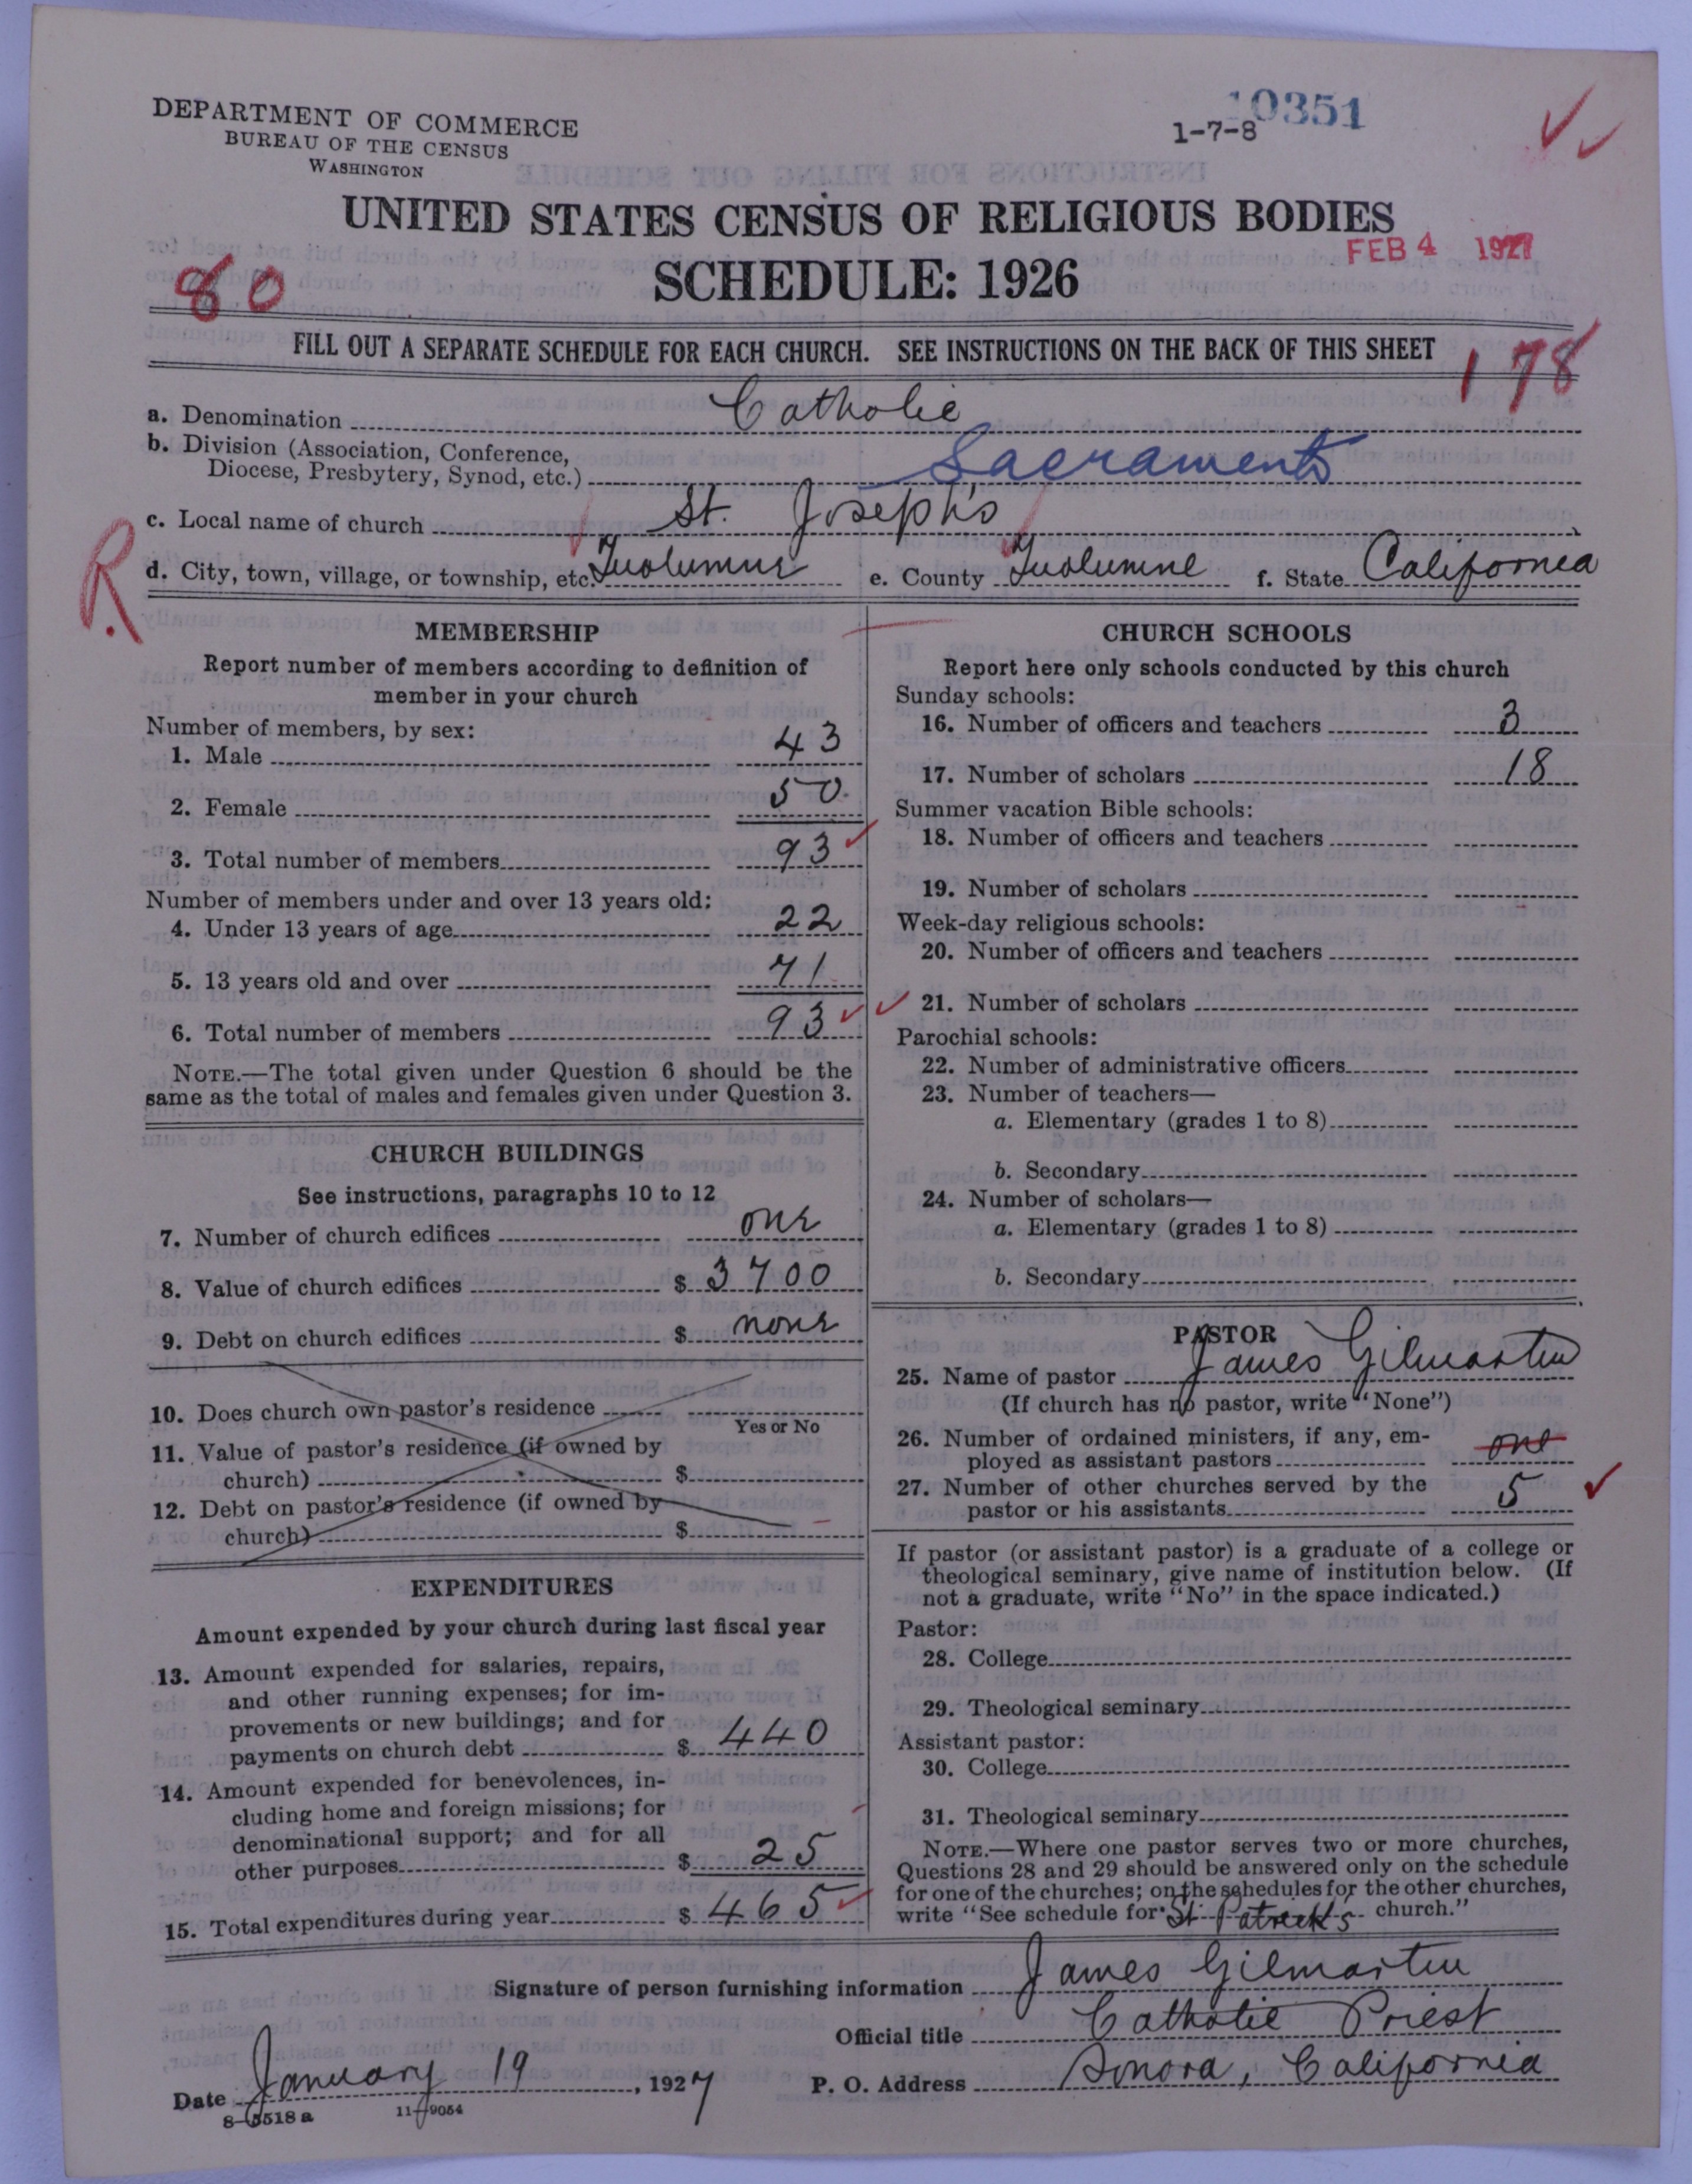 DEPARTMENT OF COMMERCE
BUREAU OF THE CENSUS
WASHINGTON
10351
1-7-8
UNITED STATES CENSUS OF RELIGIOUS BODIES
FEB 4 1927
80
SCHEDULE: 1926
FILL OUT A SEPARATE SCHEDULE FOR EACH CHURCH. SEE INSTRUCTIONS ON THE BACK OF THIS SHEET
178
a. Denomination Catholic
b. Division (Association, Conference,
Diocese, Presbytery, Synod, etc.) Sacramento
c. Local name of church St. Joseph's
R.
d. City, town, village, or township, etc. Tuolumne e. County Tuolumne f. State California
MEMBERSHIP
Report number of members according to definition of
member in your church
Number of members, by sex:
1. Male 43
2. Female 50
3. Total number of members 93
Number of members under and over 13 years old:
4. Under 13 years of age 22
5. 13 years old and over 71
6. Total number of members 93
NOTE.—The total given under Question 6 should be the
same as the total of males and females given under Question 3.
CHURCH BUILDINGS
See instructions, paragraphs 10 to 12
7. Number of church edifices one
8. Value of church edifices $ 3700
9. Debt on church edifices $ none
10. Does church own pastor's residence
Yes or No
11. Value of pastor's residence (if owned by
church) $
12. Debt on pastor's residence (if owned by
church) $
EXPENDITURES
Amount expended by your church during last fiscal year
13. Amount expended for salaries, repairs,
and other running expenses; for im-
provements or new buildings; and for
payments on church debt $ 440
14. Amount expended for benevolences, in-
cluding home and foreign missions; for
denominational support; and for all
other purposes $ 25
15. Total expenditures during year $ 465
CHURCH SCHOOLS
Report here only schools conducted by this church
Sunday schools:
16. Number of officers and teachers 3
17. Number of scholars 18
Summer vacation Bible schools:
18. Number of officers and teachers
19. Number of scholars
Week-day religious schools:
20. Number of officers and teachers
21. Number of scholars
Parochial schools:
22. Number of administrative officers
23. Number of teachers—
a. Elementary (grades 1 to 8)
b. Secondary
24. Number of scholars—
a. Elementary (grades 1 to 8)
b. Secondary
PASTOR
25. Name of pastor James Gilmartin
(If church has no pastor, write "None")
26. Number of ordained ministers, if any, em-
ployed as assistant pastors one
27. Number of other churches served by the
pastor or his assistants 5
If pastor (or assistant pastor) is a graduate of a college or
theological seminary, give name of institution below. (If
not a graduate, write "No" in the space indicated.)
Pastor:
28. College
29. Theological seminary
Assistant pastor:
30. College
31. Theological seminary
NOTE.—Where one pastor serves two or more churches,
Questions 28 and 29 should be answered only on the schedule
for one of the churches; on the schedules for the other churches,
write "See schedule for St Patrick's church."
Signature of person furnishing information James Gilmartin
Official title Catholic Priest
Date January 19, 1927 P. O. Address Sonora, California
8-5518 a 11-9054